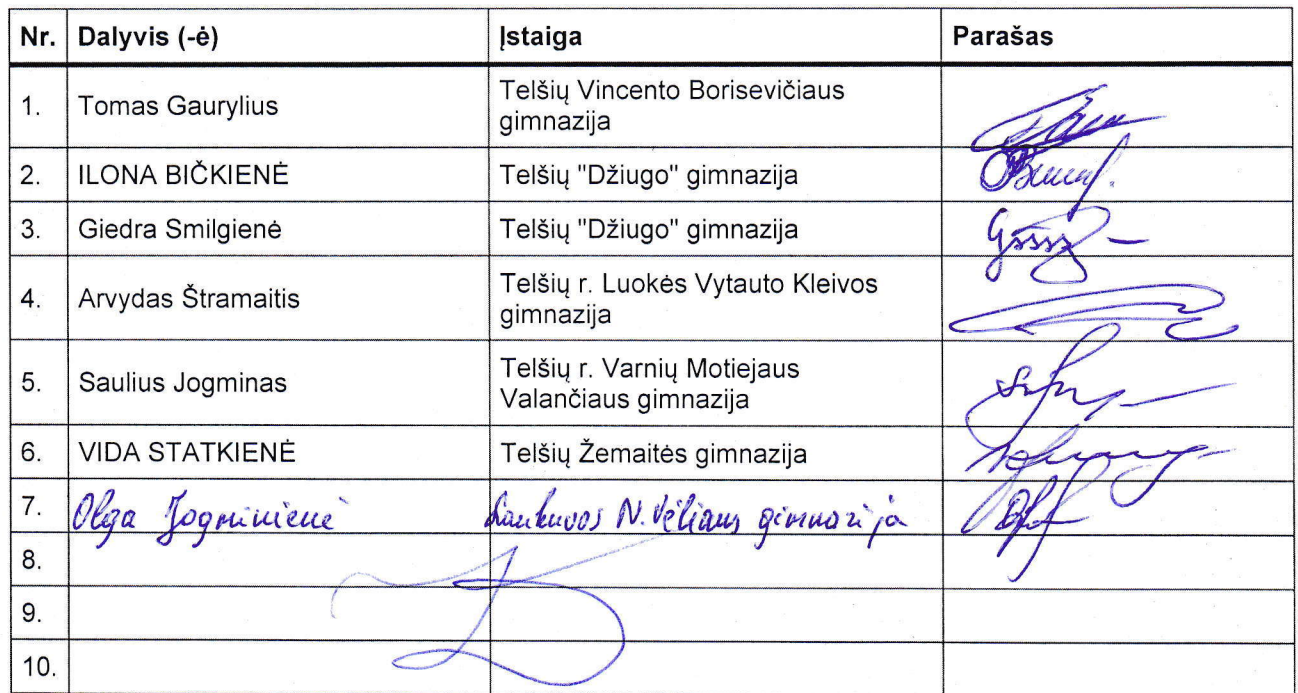 Nr. Dalyvis (-ė) Įstaiga Parašas
1. Tomas Gaurylius Telšių Vincento Borisevičiaus
gimnazija
2. ILONA BIČKIENĖ Telšių "Džiugo" gimnazija
3. Giedra Smilgienė Telšių "Džiugo" gimnazija
4. Arvydas Štramaitis Telšių r. Luokės Vytauto Kleivos
gimnazija
5. Saulius Jogminas Telšių r. Varnių Motiejaus
Valančiaus gimnazija
6. VIDA STATKIENĖ Telšių Žemaitės gimnazija
7. Olga Jogminienė Laukuvos N. Vėliaus gimnazija
8.
9.
10.